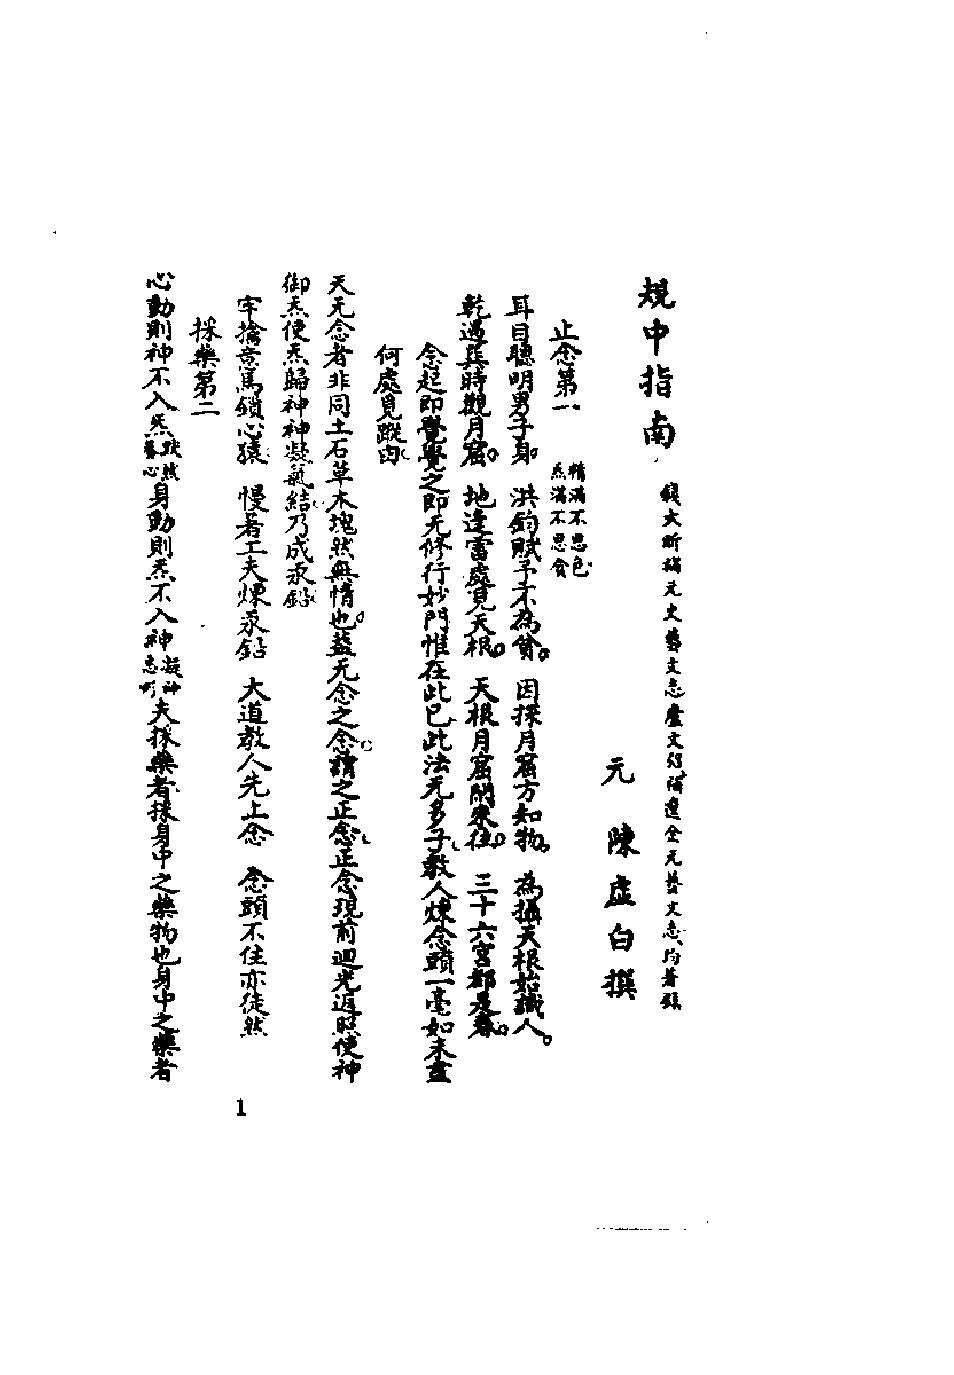 規中指南
錢大昕補元史藝文志盧文弨補遼金元藝文志均著錄
元 陳虛白撰
止念第一 精滿不思色 炁滿不思食
耳目聰明男子身 洪鈞賦予不為貧 因探月窟方知物 為攝天根始識人
乾遇巽時觀月窟 地逢雷處見天根 天根月窟閒來往 三十六宮都是春
念起即覺覺之即无修行妙門惟在此已此法无多子教人煉念頭一毫如未盡
何處見蹤由
天无念者非同土石草木塊然無情也蓋无念之念謂之正念正念現前迴光返照使神
御炁使炁歸神神凝氣結乃成汞鉛
牢擒意馬鎖心猿 慢著工夫煉汞鉛 大道教人先止念 念頭不住亦徒然
採藥第二
心動則神不入炁 身動則炁不入神 夫採藥者採身中之藥物也身中之藥者
1